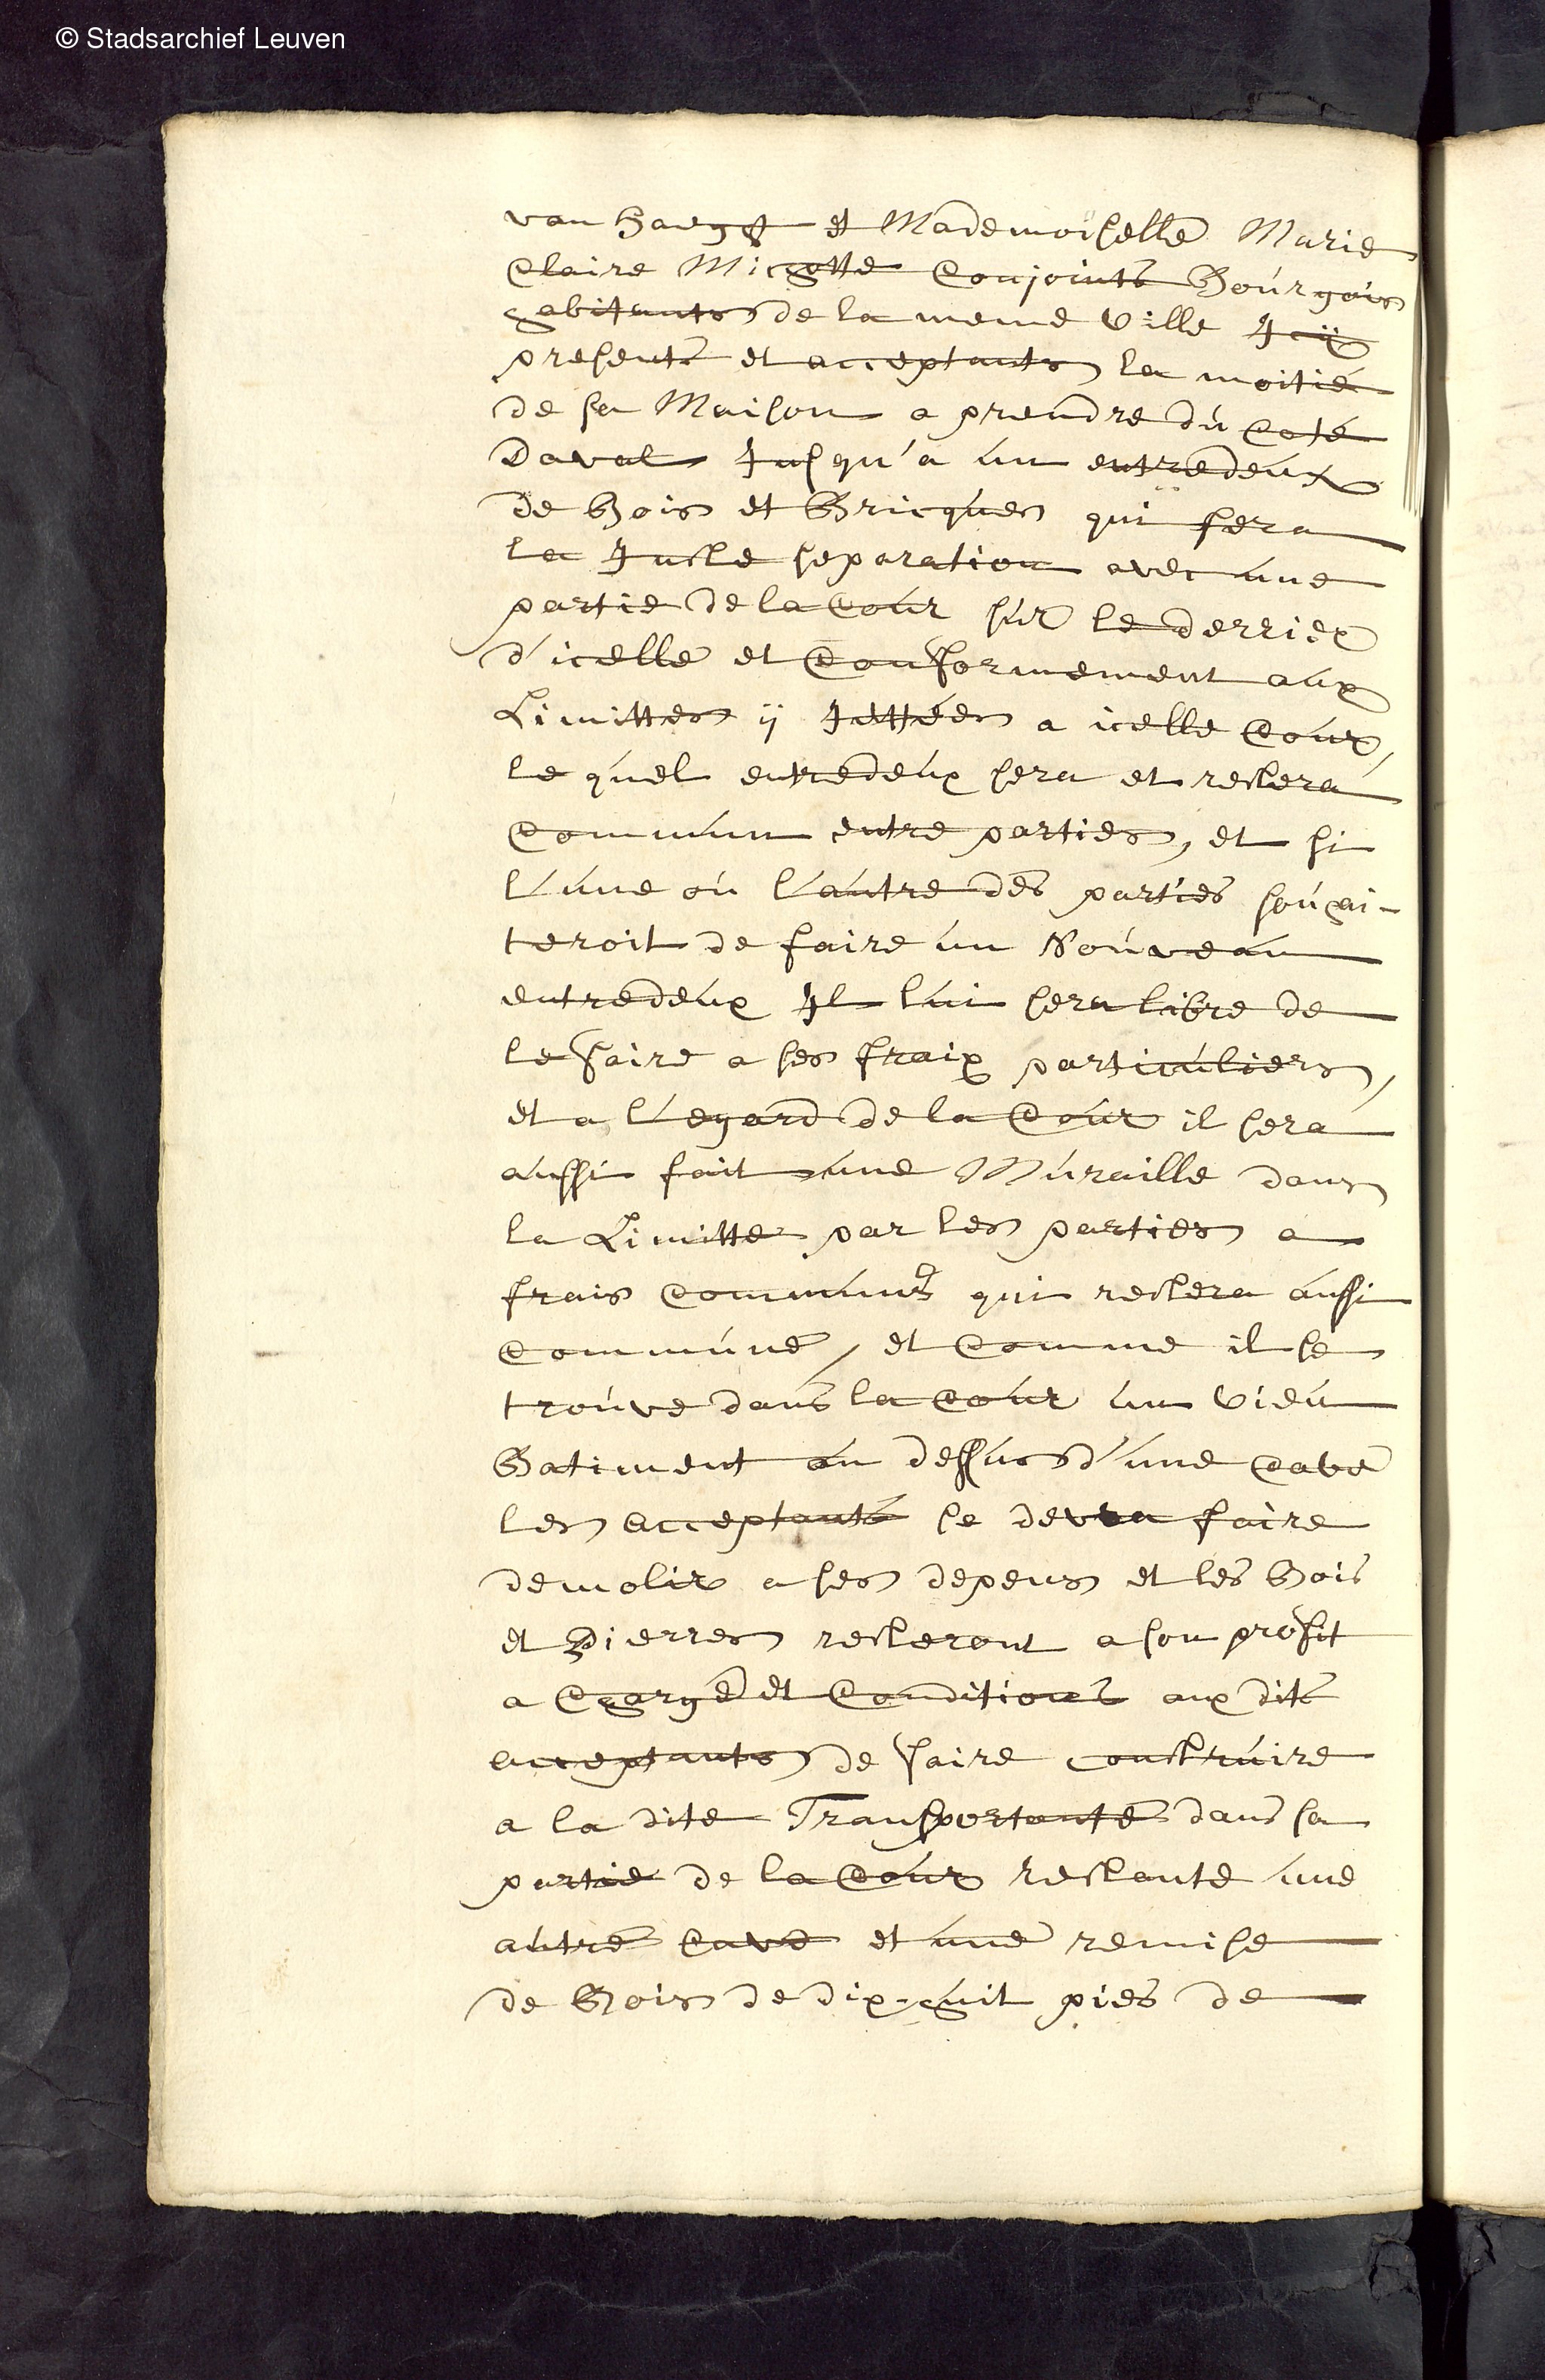 © Stadsarchief Leuven
van et Mademoiselle Marie
Claire Michotte Conjoints Bourgois
habitants de la meme Ville Icÿ
presents et acceptants la moitié
de sa Maison a prendre du Coté
Daval Jusqu'a un entredeux
de Bois et Bricques qui fera
la Juste separation avec une
partie de la Cour sur le derrier
d'icelle et Conformement aux
Limittes ÿ Jettées a icelle Cour,
le quel entredeux sera et restera
Commun entre parties, et si
l'une ou l'autre des parties souhai-
teroit de faire un Nouveau
entredeux Il lui sera libre de
le faire a ses fraix particuliers,
et a l'egard de la Cour il sera
aussi fait une Muraille dans
la Limitte par les parties a
frais Communs qui restera aussi
Commune, et Comme il se
trouve dans la Cour un Vieu
Batiment au dessus d'une Cave
les acceptants se devra faire
demolir a ses depens et les Bois
et Pierres resteront a son profit
a Charge et Conditions aux dits
acceptants de faire construire
a la dite Transportante dans sa
partie de la Cour restante une
autre Cave et une remise
de Bois de dix-huit pies de